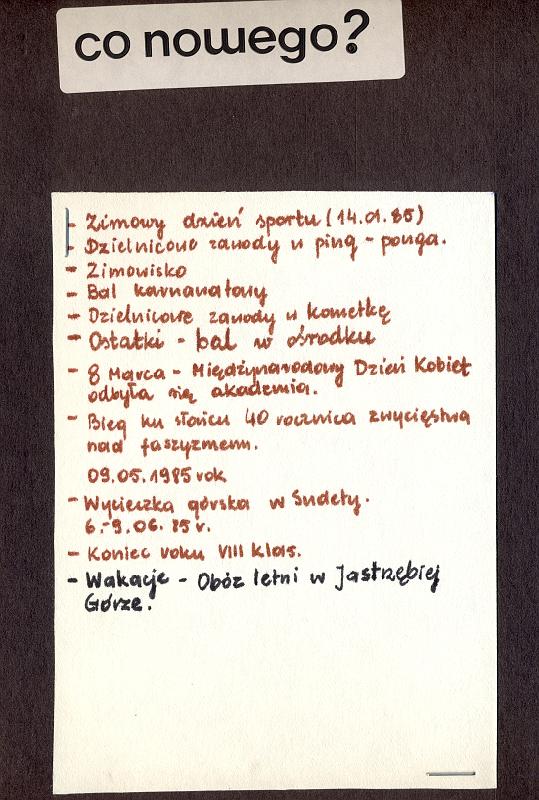 co nowego?
- Zimowy dzień sportu (14.01.85)
- Dzielnicowe zawody w ping-ponga.
- Zimowisko
- Bal karnawałowy
- Dzielnicowe zawody w kometkę
- Ostatki - bal w ośrodku
- 8 Marca - Międzynarodowy Dzień Kobiet
odbyła się akademia.
- Bieg ku słońcu 40 rocznica zwycięstwa
nad faszyzmem.
09.05.1985 rok
- Wycieczka górska w Sudety.
6.-9.06.85 r.
- Koniec roku VIII klas.
- Wakacje - Obóz letni w Jastrzębiej
Górze.